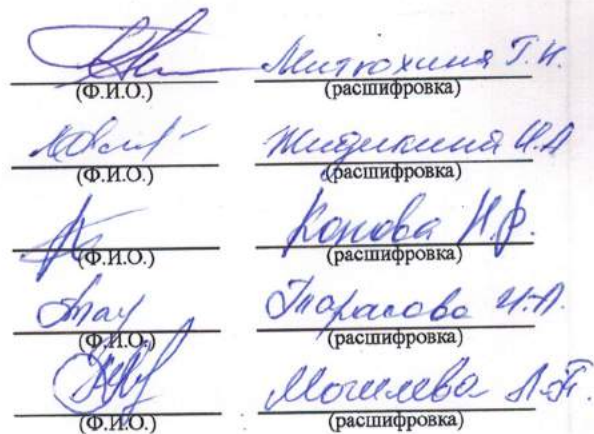 Митюхина Г.Н.
(Ф.И.О.) (расшифровка)
Жидикина И.А
(Ф.И.О.) (расшифровка)
Конова Н.Ф.
(Ф.И.О.) (расшифровка)
Тарасова И.А.
(Ф.И.О.) (расшифровка)
Могилева Л.П.
(Ф.И.О.) (расшифровка)